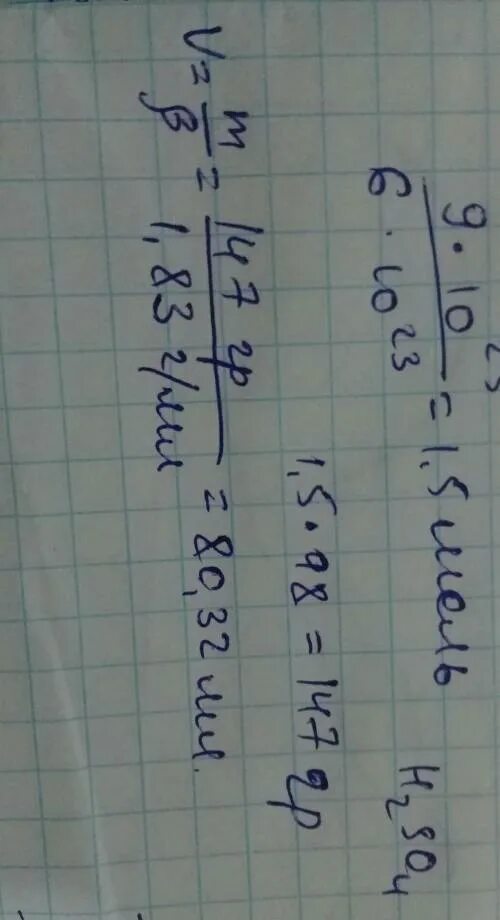 9·10²³ / 6·10²³ = 1,5 моль H₂SO₄
1,5·98 = 147 гр
V = m/ρ = 147 гр / 1,83 г/мл = 80,32 мл.